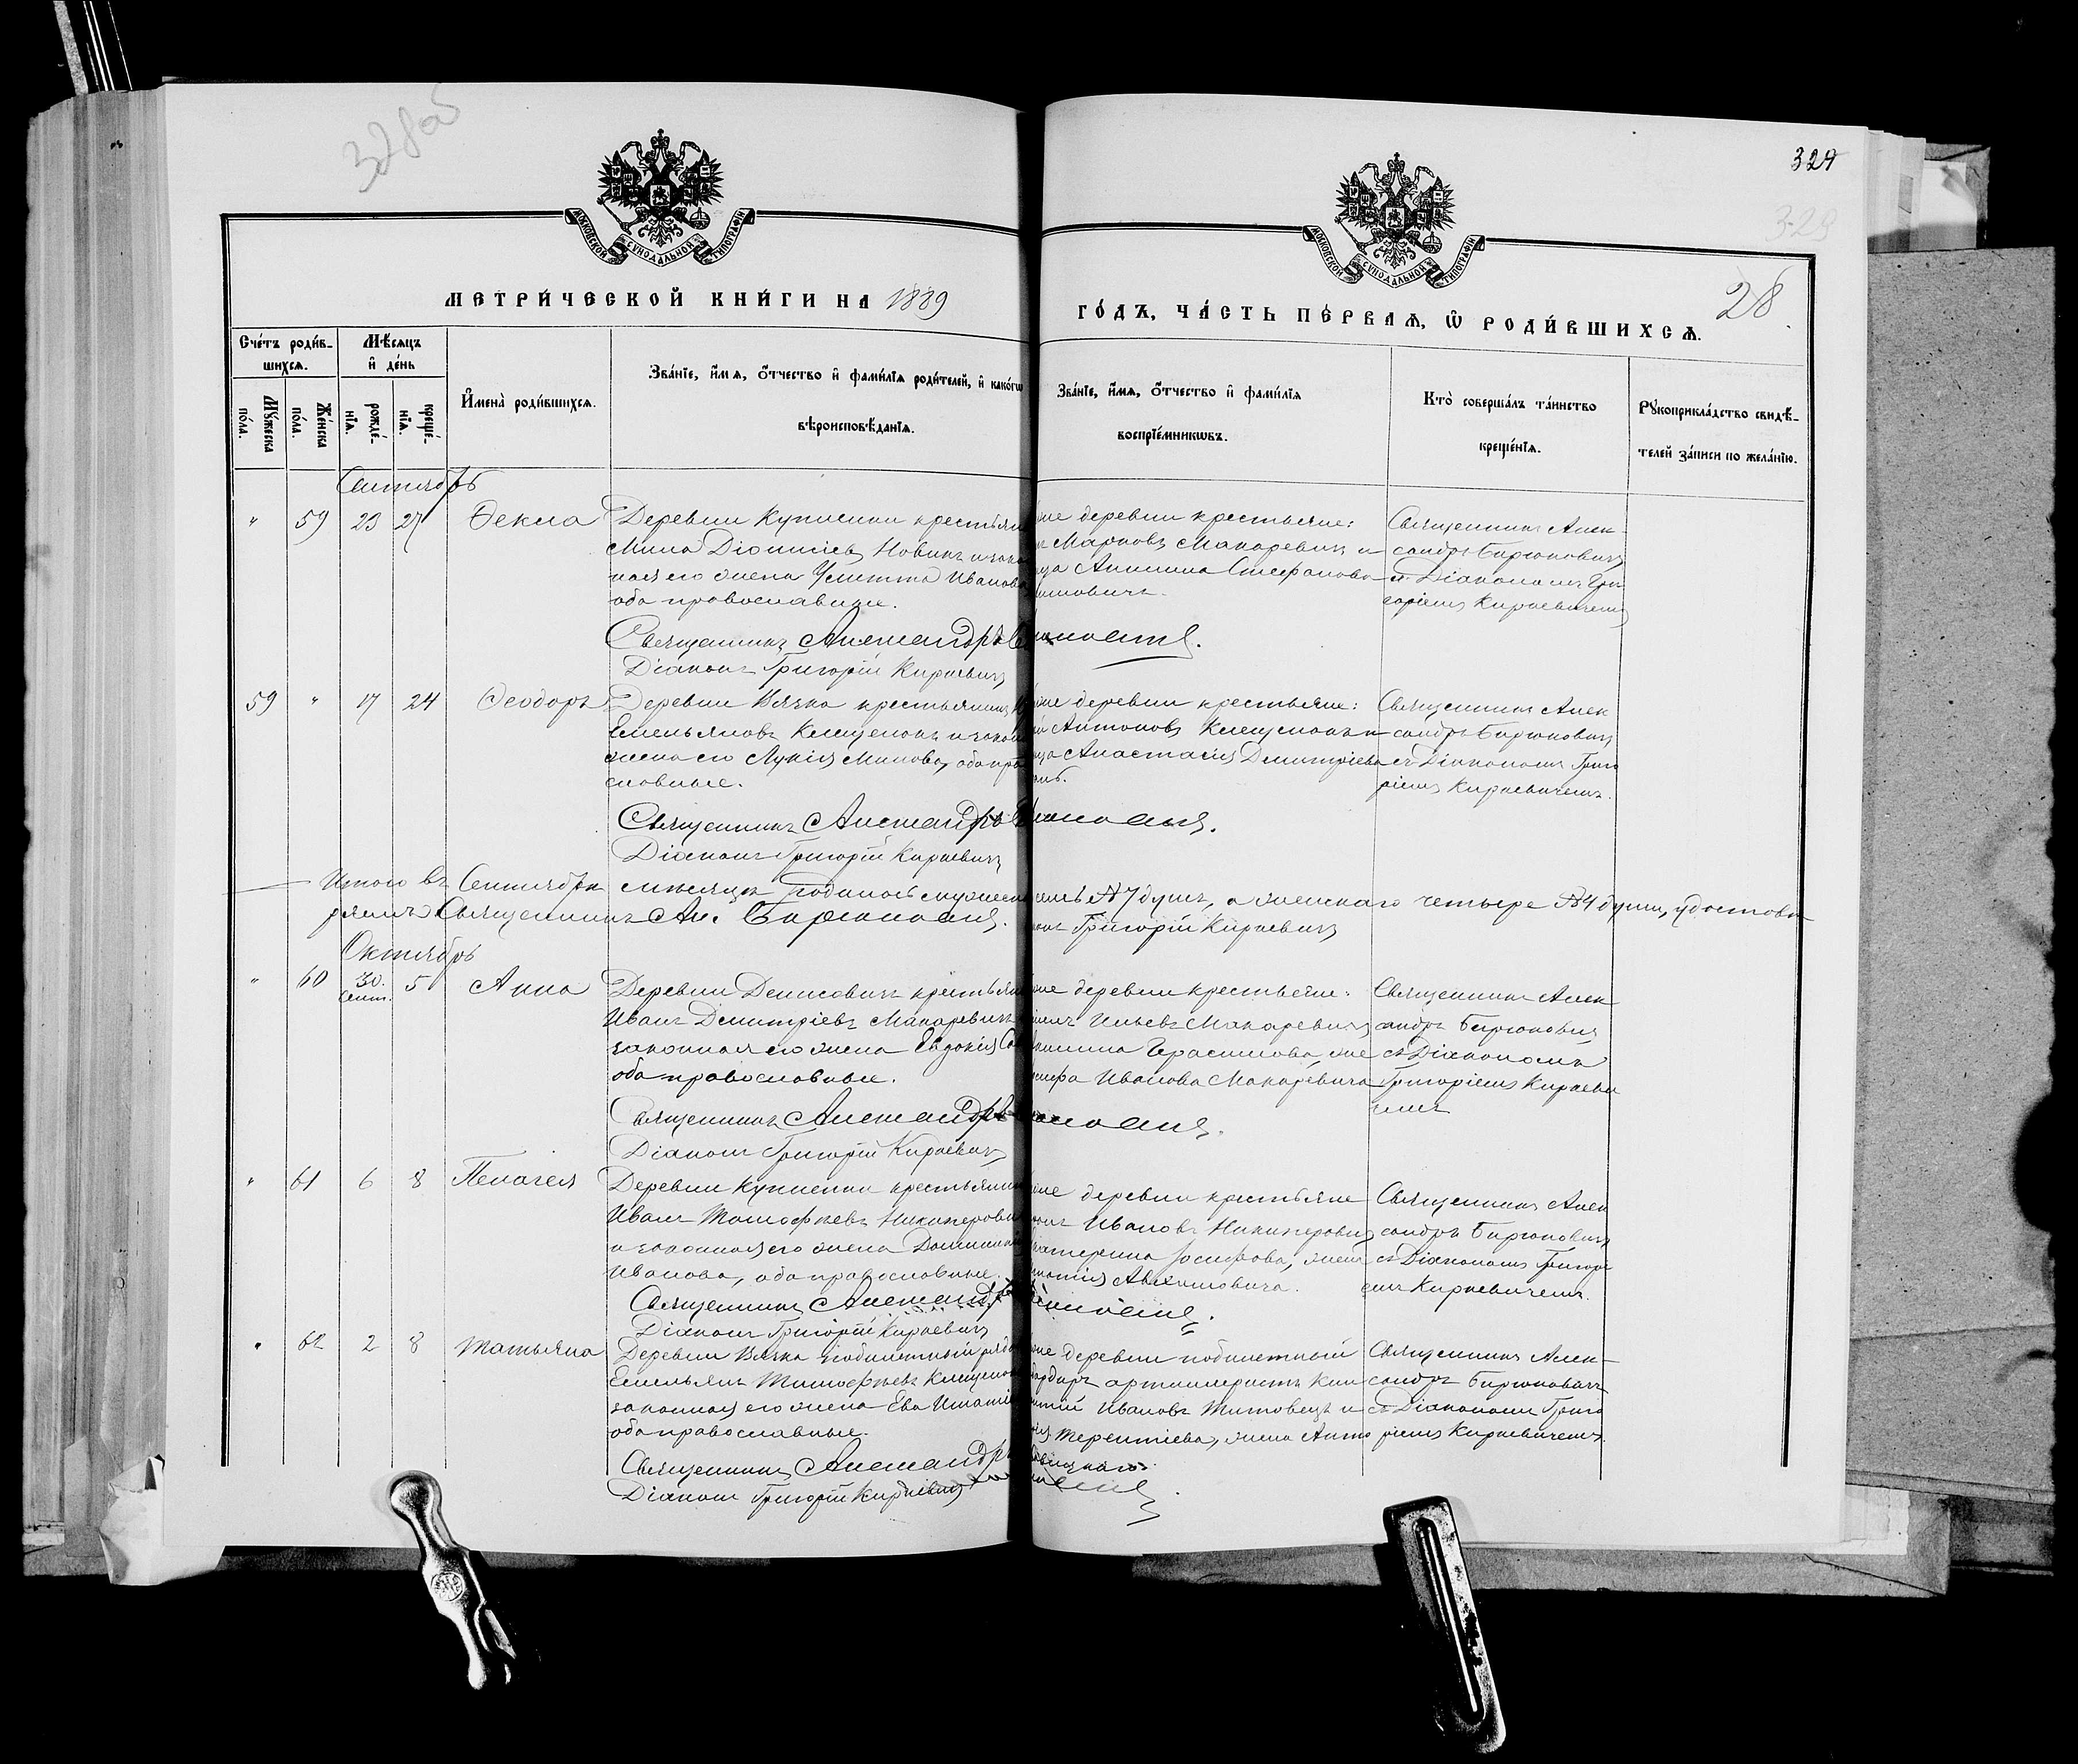 328об
329
329
28
МОСКОВСКОЙ СѴНОДАЛЬНОЙ ТИПОГРАФІИ
МОСКОВСКОЙ СѴНОДАЛЬНОЙ ТИПОГРАФІИ
МЕТРИ́ЧЕСКОЙ КНИ́ГИ НА 1889
ГО́ДЪ, ЧА́СТЬ ПЕ́РВАѦ, Ѡ҆ РОДИ́ВШИХСѦ.
Сче́тъ роди́в-
шихсѧ.
Мꙋ́жеска по́ла.
Же́нска по́ла.
Мѣ́сѧцъ
и҆ де́нь
рожде́-
нїѧ.
креще́-
нїѧ.
И҆мена̀ роди́вшихсѧ.
Зва́нїе, и҆́мѧ, ѻ҆́тчество и҆ фами́лїѧ роди́телей, и҆ како́гѡ
вѣроисповѣ́данїѧ.
Зва́нїе, и҆́мѧ, ѻ҆́тчество и҆ фами́лїѧ
воспрїе́мникѡвъ.
Кто̀ соверша́лъ та́инство
креще́нїѧ.
Рꙋкоприкла́дство свидѣ́-
телей за́писи по жела́нїю.
Сентябрь
" 59 23 27 Ѳекла
Деревни Купленки крестьян
Мина Діонисіевъ Новикъ и зако
ная его жена Улитта Иванова
оба православные.
Священникъ Александръ
Діаконъ Григорій Кираевичъ
же деревни крестьяне:
Марковъ Макаревичъ и
Стефанова
Священникъ Алек-
сандръ Бирюковичъ
съ Діакономъ Гри
горіемъ Кираевичемъ
59 " 17 24 Ѳеодоръ
Деревни Вязка крестьянинъ
Емельяновъ Клещенокъ и закон
жена его Лукія Минова, оба пра
славные.
Священникъ Александръ
Діаконъ Григорій Кираевичъ
же деревни крестьяне:
Антоновъ Клещенокъ и
Анастасія Димитріева
Священникъ Алек
сандръ Бирюковичъ
съ Діакономъ Григо
ріемъ Кираевичемъ.
Итого въ Сентябрѣ мѣсяцѣ родилось мужеска 7 душъ, а женскаго четыре 4 души, удостовѣ-
ряемъ Священникъ Ал. Бирюковичъ. Григорій Кираевичъ
Октябрь
" 60 30. Сент. 5 Анна
Деревни Денисовичъ крестьян
Иванъ Димитріевъ Макаревичъ
законная его жена Евдокія
оба православные.
Священникъ Александръ
Діаконъ Григорій Кираевичъ
же деревни крестьяне:
Ильевъ Макаревичъ
Герасимова, же
Иванова Макаревича
Священникъ Алек
сандръ Бирюковичъ
съ Діакономъ
Григоріемъ Кираеви
чемъ
" 61 6 8 Пелагея
Деревни Купленки крестьянин
Иванъ Тимофѣевъ Никиперович
и законная его жена
Иванова, оба православные.
Священникъ Александръ
Діаконъ Григорій Кираевичъ
же деревни крестьяне
Ивановъ Никиперовичъ
Екатерина Іосифова, жена
Священникъ Алек
сандръ Бирюковичъ
съ Діакономъ Григорі
емъ Кираевичемъ.
" 62 2 8 Татьяна
Деревни Вязка побилетный рядо
Емельянъ Тимофѣевъ Клещенок
законная его жена Ева Игнатіе
оба православные.
Священникъ Александръ
Діаконъ Григорій Кираевичъ
же деревни побилетный
Ивановъ Титовецъ и
Терентіева, жена Анто
Священникъ Алек-
сандръ Бирюковичъ
съ Діакономъ Григо
ріемъ Кираевичемъ.